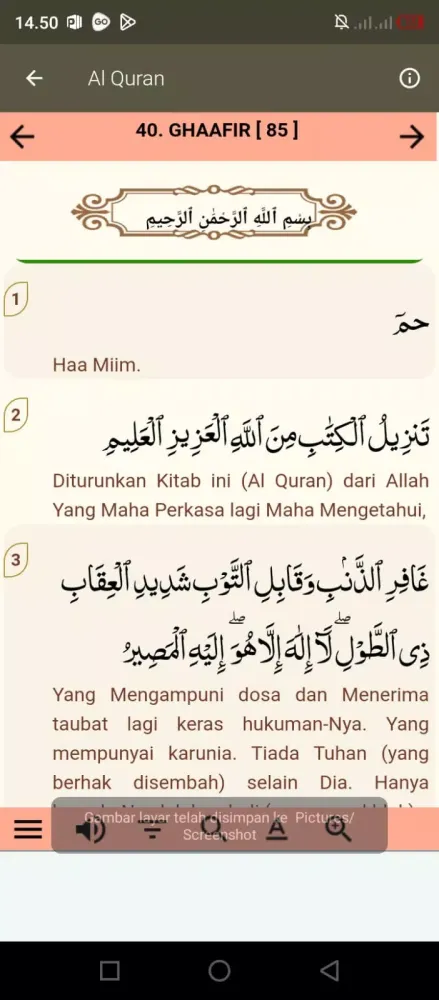 14.50
Al Quran
40. GHAAFIR [ 85 ]
بِسْمِ ٱللَّهِ ٱلرَّحْمَٰنِ ٱلرَّحِيمِ
1
حمٓ
Haa Miim.
2
تَنزِيلُ ٱلْكِتَٰبِ مِنَ ٱللَّهِ ٱلْعَزِيزِ ٱلْعَلِيمِ
Diturunkan Kitab ini (Al Quran) dari Allah
Yang Maha Perkasa lagi Maha Mengetahui,
3
غَافِرِ ٱلذَّنۢبِ وَقَابِلِ ٱلتَّوْبِ شَدِيدِ ٱلْعِقَابِ
ذِى ٱلطَّوْلِ ۖ لَآ إِلَٰهَ إِلَّا هُوَ ۖ إِلَيْهِ ٱلْمَصِيرُ
Yang Mengampuni dosa dan Menerima
taubat lagi keras hukuman-Nya. Yang
mempunyai karunia. Tiada Tuhan (yang
berhak disembah) selain Dia. Hanya
Gambar layar telah disimpan ke Pictures/
Screenshot